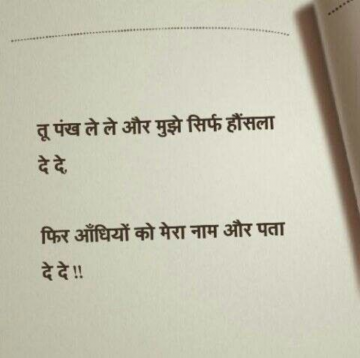 तू पंख ले ले और मुझे सिर्फ हौंसला
दे दे,
फिर आँधियों को मेरा नाम और पता
दे दे !!